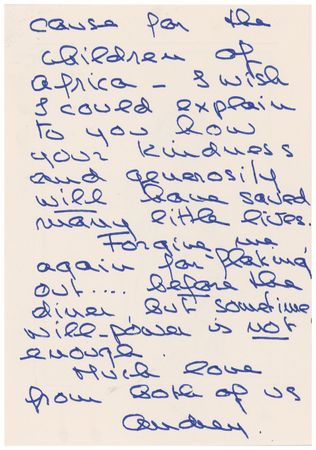 cause for the
children of
africa - I wish
I could explain
to you how
your kindness
and generosity
will have saved
many little lives.
Forgive me
again for "flaking
out".... before the
diner but sometime
will-power is not
enough.
Much love
from both of us
Audrey.